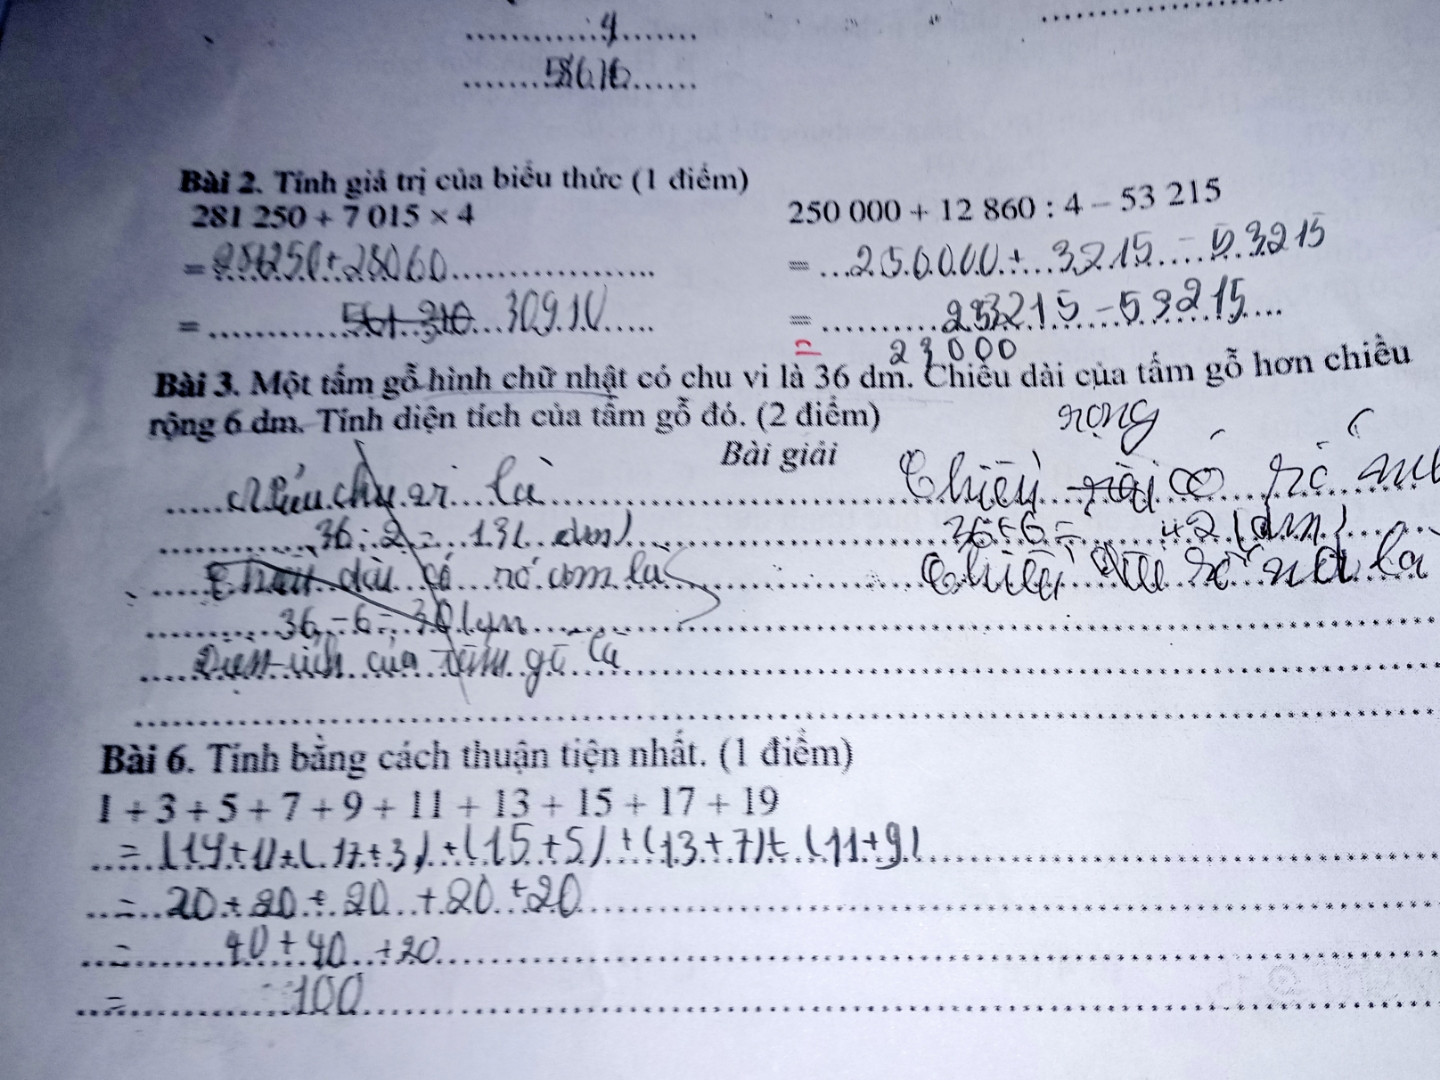 4
58616
Bài 2. Tính giá trị của biểu thức (1 điểm)
281 250 + 7 015 × 4
250 000 + 12 860 : 4 – 53 215
= 281250 + 28060
= 250000 + 3215 – 53215
= 30910
= 253215 – 53215
= 000
Bài 3. Một tấm gỗ hình chữ nhật có chu vi là 36 dm. Chiều dài của tấm gỗ hơn chiều
rộng 6 dm. Tính diện tích của tấm gỗ đó. (2 điểm)
rộng
Bài giải
chu vi là
Chiều có số
36 : 2 =
36 + 6 = 42 (dm)
dài có số là
Chiều là
36 – 6 = 30
Diện tích của tấm gỗ là
Bài 6. Tính bằng cách thuận tiện nhất. (1 điểm)
1 + 3 + 5 + 7 + 9 + 11 + 13 + 15 + 17 + 19
= (19 + 1) + (17 + 3) + (15 + 5) + (13 + 7) + (11 + 9)
= 20 + 20 + 20 + 20 + 20
= 40 + 40 + 20
= 100